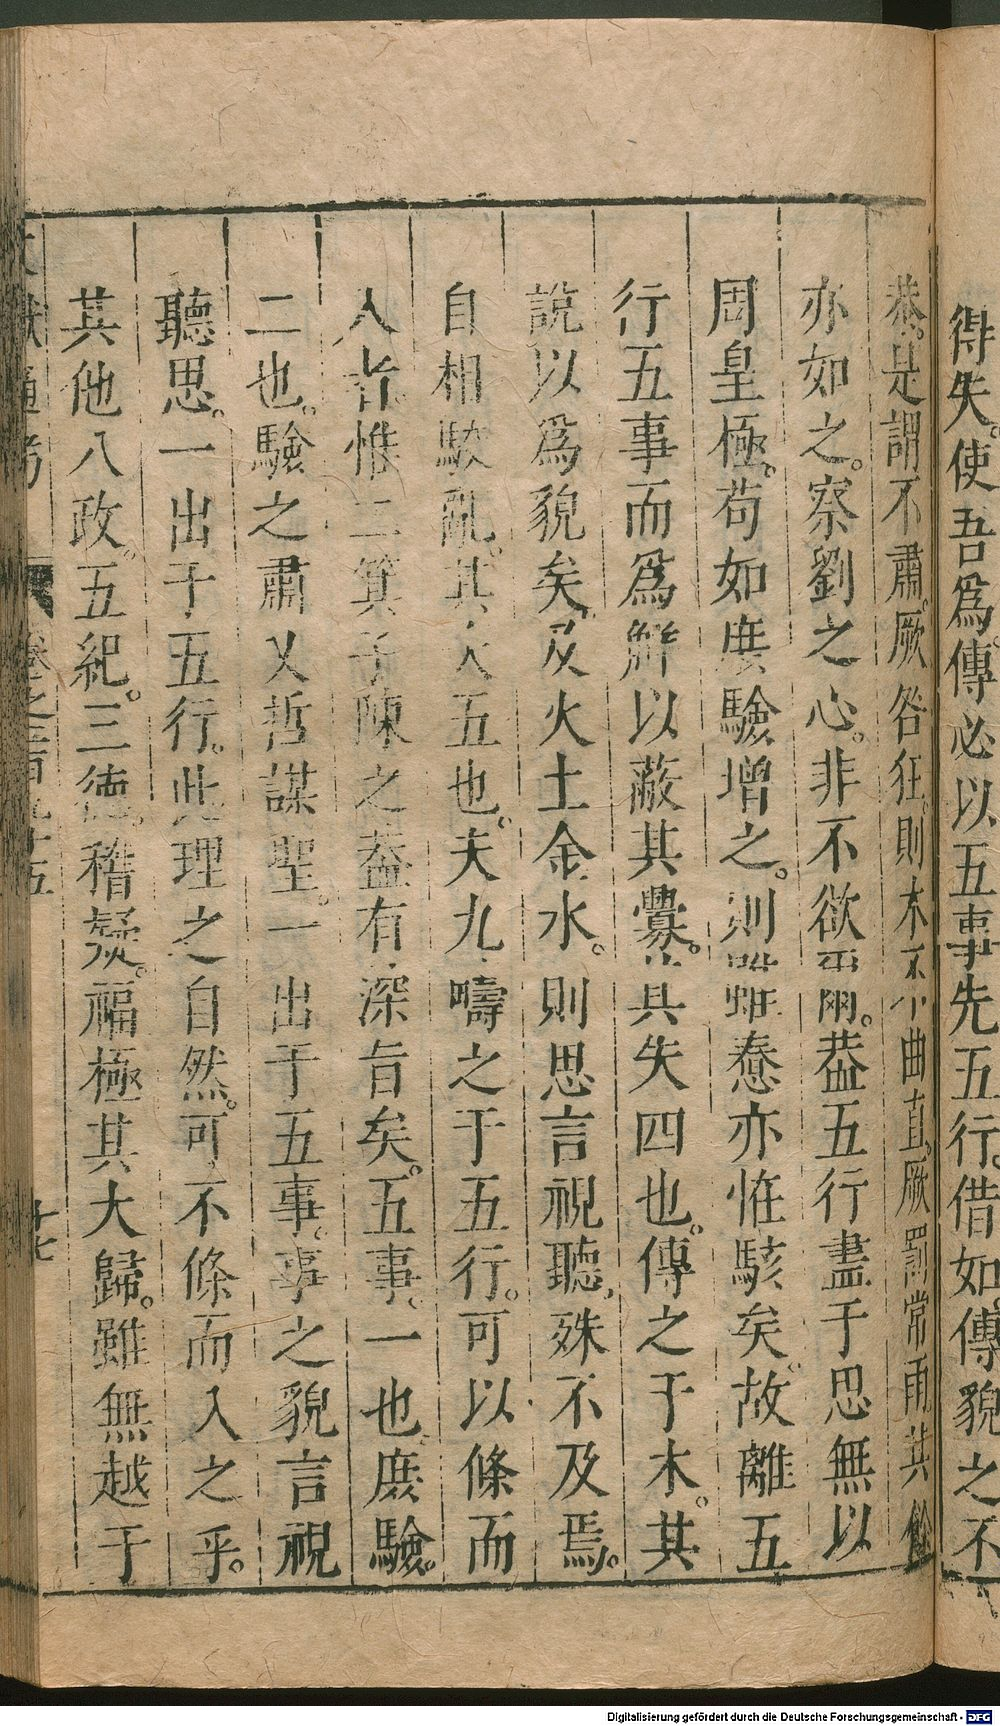 得失使吾爲傳必以五事先五行借如傳貌之不
恭是謂不肅厥咎狂則木不曲直厥罰常雨其餘
亦如之察劉之心非不欲爾葢五行盡于思無以
周皇極苟如庶驗增之則雖憃亦怪駭矣故離五
行五事而爲解以蔽其釁其失四也傳之于木其
說以爲貌矣及火土金水則思言視聽殊不及焉
自相駮亂其失五也夫九疇之于五行可以條而
入者惟二箕子陳之葢有深旨矣五事一也庶驗
二也驗之肅乂哲謀聖一出于五事事之貌言視
聽思一出于五行此理之自然可不條而入之乎
其他八政五紀三德稽疑福極其大歸雖無越于
文獻通考 卷之三百九十五 十七
Digitalisierung gefördert durch die Deutsche Forschungsgemeinschaft - DFG